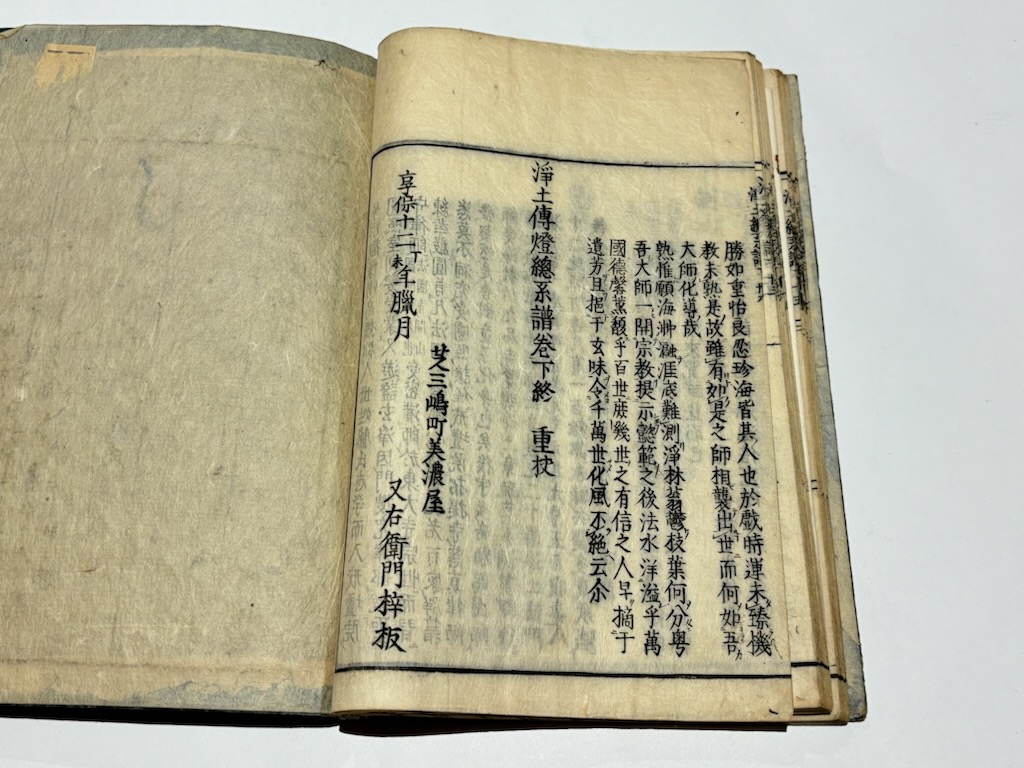 勝如重怡良忍珍海皆其人也於戲時運未臻機
教未熟是故雖有如是之師相襲出世而何如吾
大師化導哉
熟惟願海沖瀜涯底難測淨林蓊鬱枝葉何分粤
吾大師一開宗教提示懿範之後法水洋溢乎萬
國德馨薰馥乎百世庶幾世之有信之人早摘于
遺芳且挹于玄味令千萬世化風不絶云尒
淨土傳燈總系譜卷下終 重校
享保十二丁未年臘月
芝三嶋町美濃屋
又右衛門梓板